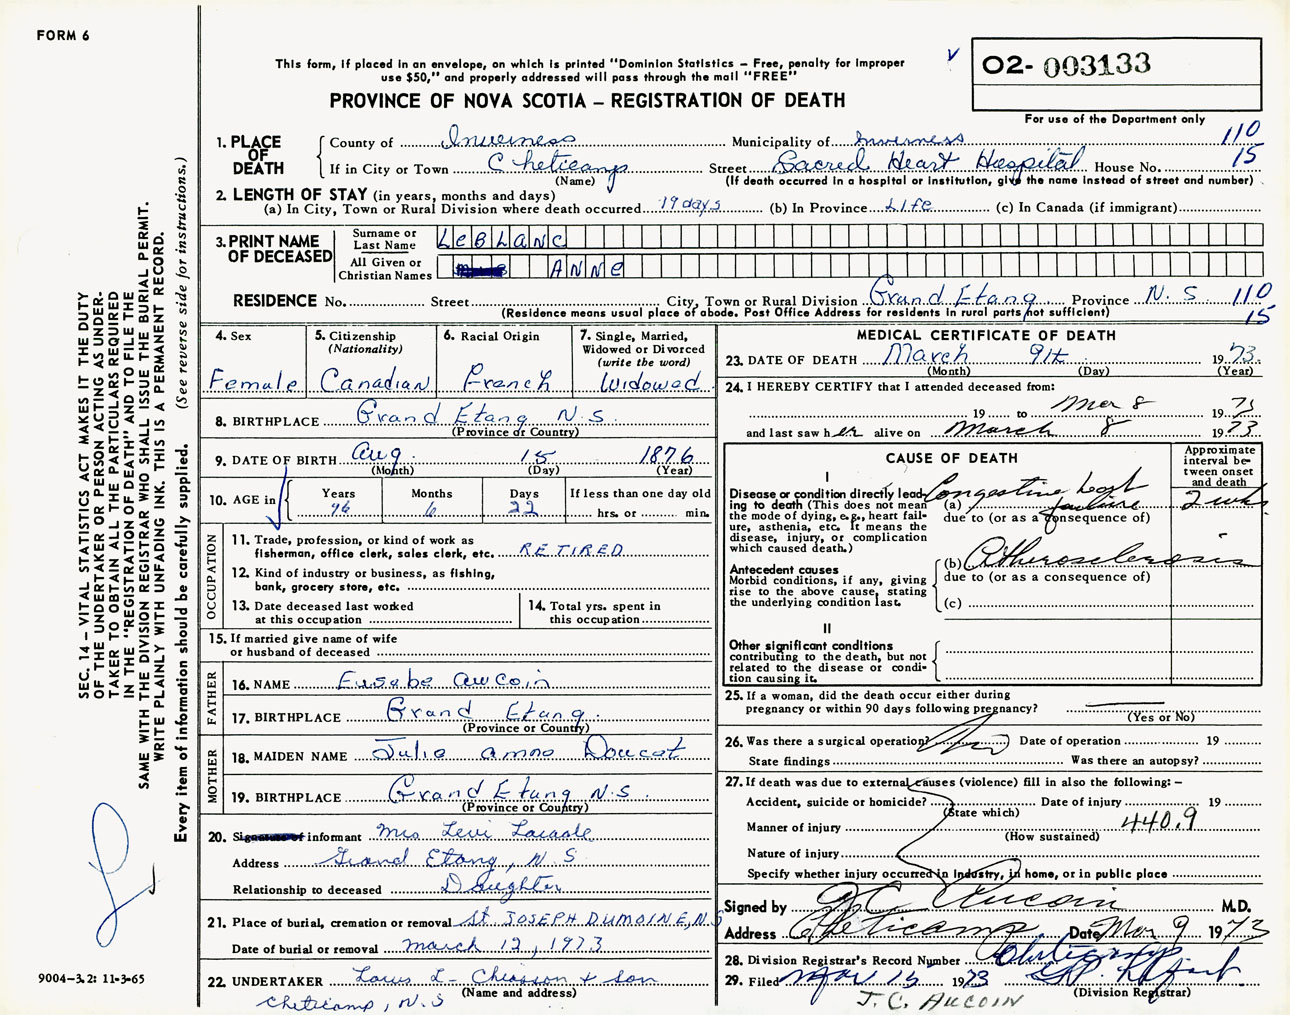 FORM 6
This form, if placed in an envelope, on which is printed "Dominion Statistics – Free, penalty for improper
use $50," and properly addressed will pass through the mail "FREE"
PROVINCE OF NOVA SCOTIA – REGISTRATION OF DEATH
02- 003133
For use of the Department only
1. PLACE OF DEATH
County of Inverness Municipality of Inverness 110
If in City or Town Cheticamp Street Sacred Heart Hospital House No. 15
(Name) (If death occurred in a hospital or institution, give the name instead of street and number)
2. LENGTH OF STAY (in years, months and days)
(a) In City, Town or Rural Division where death occurred 19 days (b) In Province Life (c) In Canada (if immigrant)
3. PRINT NAME OF DECEASED
Surname or Last Name LeBLANC
All Given or Christian Names ANNe
RESIDENCE No. Street City, Town or Rural Division Grand Etang Province N. S 110
(Residence means usual place of abode. Post Office Address for residents in rural parts not sufficient) 15
4. Sex
Female
5. Citizenship
(Nationality)
Canadian
6. Racial Origin
French
7. Single, Married,
Widowed or Divorced
(write the word)
Widowed
8. BIRTHPLACE Grand Etang N. S.
(Province or Country)
9. DATE OF BIRTH Aug. 15 1876
(Month) (Day) (Year)
10. AGE in
Years Months Days If less than one day old
96 6 22 hrs. or min.
OCCUPATION
11. Trade, profession, or kind of work as
fisherman, office clerk, sales clerk, etc. RETIRED
12. Kind of industry or business, as fishing,
bank, grocery store, etc.
13. Date deceased last worked
at this occupation
14. Total yrs. spent in
this occupation
15. If married give name of wife
or husband of deceased
FATHER
16. NAME Eusebe Aucoin
17. BIRTHPLACE Grand Etang.
(Province or Country)
MOTHER
18. MAIDEN NAME Julie Doucet
19. BIRTHPLACE Grand Etang N.S.
(Province or Country)
20. Signature of informant Mrs Levi
Address Grand Etang, N. S
Relationship to deceased Daughter
21. Place of burial, cremation or removal St. JOSEPH DUMOINE, N.S
Date of burial or removal March 12, 1973
22. UNDERTAKER Louis L- Chiasson + son
(Name and address)
Cheticamp, N. S
MEDICAL CERTIFICATE OF DEATH
23. DATE OF DEATH March 9th 1973.
(Month) (Day) (Year)
24. I HEREBY CERTIFY that I attended deceased from:
19 to Mar 8 1973
and last saw her alive on March 8 1973
CAUSE OF DEATH
Approximate
interval be-
tween onset
and death
I
Disease or condition directly lead-
ing to death (This does not mean
the mode of dying, e.g., heart fail-
ure, asthenia, etc. It means the
disease, injury, or complication
which caused death.)
(a) Congestive heart failure 2 wks
due to (or as a consequence of)
Antecedent causes
Morbid conditions, if any, giving
rise to the above cause, stating
the underlying condition last.
(b) Atherosclerosis
due to (or as a consequence of)
(c)
II
Other significant conditions
contributing to the death, but not
related to the disease or condi-
tion causing it.
25. If a woman, did the death occur either during
pregnancy or within 90 days following pregnancy?
(Yes or No)
26. Was there a surgical operation? Date of operation 19
State findings Was there an autopsy?
27. If death was due to external causes (violence) fill in also the following: –
Accident, suicide or homicide? Date of injury 19
(State which)
Manner of injury 440.9
(How sustained)
Nature of injury
Specify whether injury occurred in industry, in home, or in public place
Signed by J C Aucoin M.D.
Address Cheticamp Date Mar 9 1973
28. Division Registrar's Record Number
29. Filed Mar 15 1973
(Division Registrar)
J. C. AUCOIN
SEC. 14 – VITAL STATISTICS ACT MAKES IT THE DUTY
OF THE UNDERTAKER OR PERSON ACTING AS UNDER-
TAKER TO OBTAIN ALL THE PARTICULARS REQUIRED
IN THE "REGISTRATION OF DEATH" AND TO FILE THE
SAME WITH THE DIVISION REGISTRAR WHO SHALL ISSUE THE BURIAL PERMIT.
WRITE PLAINLY WITH UNFADING INK. THIS IS A PERMANENT RECORD.
Every item of information should be carefully supplied. (See reverse side for instructions.)
9004–3.2: 11-3-65